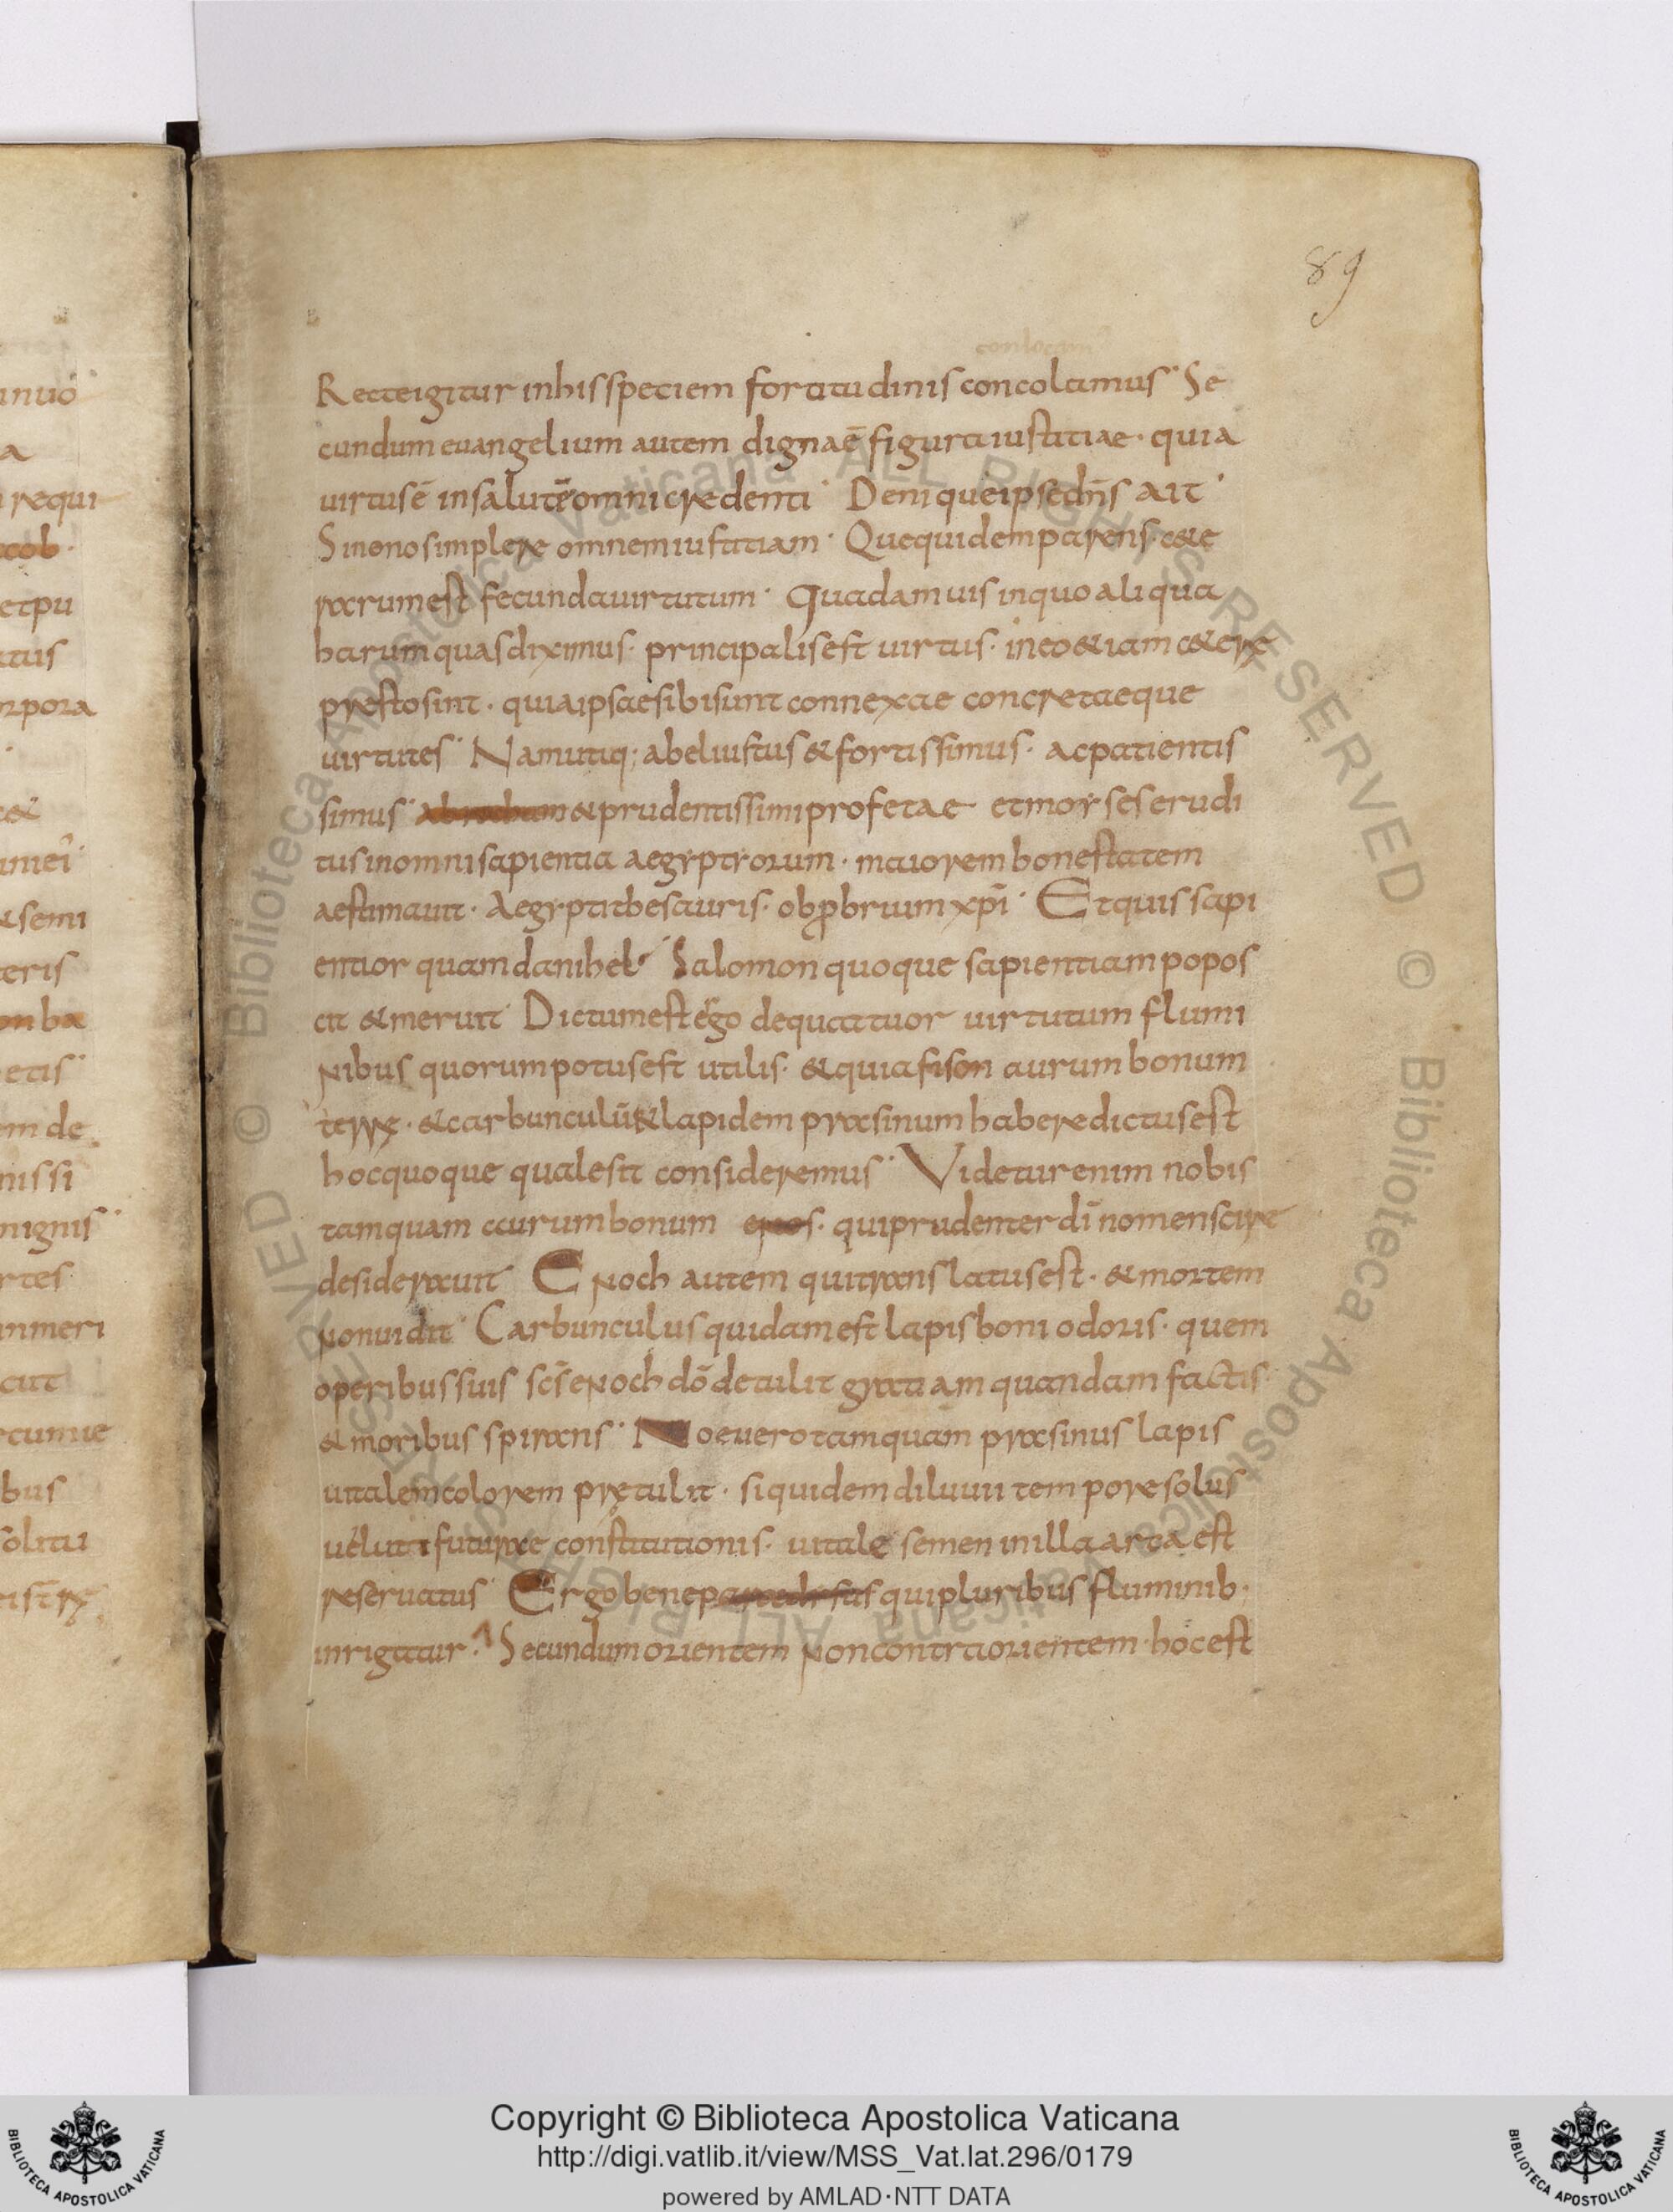 89
conlocam
Recte igitur in his speciem fortitudinis concolamus· Se
cundum euangelium autem digna ē figura iustitiae· quia
uirtus ē in salutē omni credenti· Denique ipse dn̄s ait·
Sino nos implere omnem iustitiam· Que quidem parens c&e
rarum est fecunda uirtutum· Quadam uis in quo aliqua
harum quas diximus· principalis est uirtus· in eo &iam c&erę
presto sint· quia ipsae sibi sunt connexae concretaeque
uirtutes· Nam utiq; abel iustus & fortissimus· ac patientis
simus· abraham & prudentissimi profetae et moyses erudi
tus in omni sapientia aegyptiorum· maiorem honestatem
aestimauit· Aegypti thesauris· obprbrium xp̄i· Et quis sapi
entior quam danihel· Salomon quoque sapientiam popos
cit & meruit· Dictum est ergo de quattuor uirtutum flumi
nibus quorum potus est utilis· & quia fison aurum bonum
terrę· & carbunculū & lapidem prasinum habere dictus est
hoc quoque quale sit consideremus· Videtur enim nobis
tamquam aurum bonum enos· qui prudenter dī nomen scire
desiderauit· Enoch autem qui translatus est· & mortem
non uidit· Carbunculus quidam est lapis boni odoris· quem
operibus suis sc̄s enoch dō detulit gratiam quandam factis
& moribus spirans· Noe uero tamquam prasinus lapis
uitalem colorem prętulit· siquidem diluuii tempore solus
uelut futurae constitutionis· uitale semen in illa arca est
reseruatus· Ergo bene paradisus qui pluribus fluminib·
inrigatur· Secundum orientem non contra orientem· hoc est
inuō
a
requi
acob·
etpu
atus
orpora
·
c&
&semi
ceris
onba
etis·
m de
nissi
nignis·
rtes
inmeri
cut
bus
solitu
© Biblioteca Apostolica Vaticana ALL RIGHTS RESERVED © Biblioteca Apostolica Vaticana ALL RIGHTS RESERVED
BIBLIOTECA APOSTOLICA VATICANA
Copyright © Biblioteca Apostolica Vaticana
http://digi.vatlib.it/view/MSS_Vat.lat.296/0179
powered by AMLAD·NTT DATA
BIBLIOTECA APOSTOLICA VATICANA